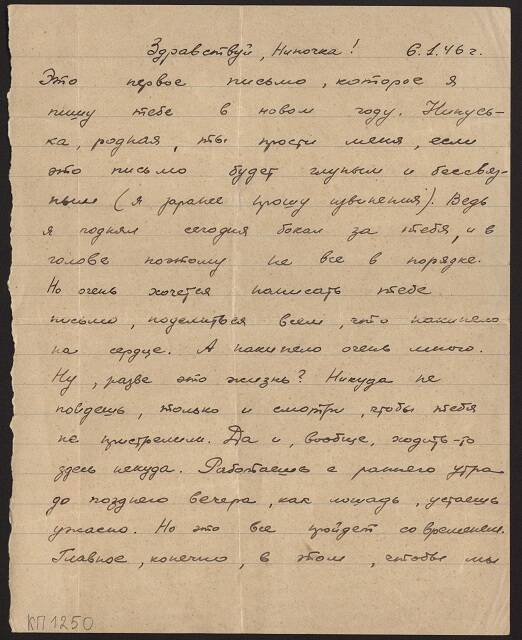 Здравствуй, Ниночка! 6.1.46 г.
Это первое письмо, которое я
пишу тебе в новом году. Нинусь-
ка, родная, ты прости меня, если
это письмо будет глупым и бессвяз-
ным (я заранее прошу извинения). Ведь
я поднял сегодня бокал за тебя, и в
голове поэтому не все в порядке.
Но очень хочется написать тебе
письмо, поделиться всем, что накипело
на сердце. А накипело очень много.
Ну, разве это жизнь? Никуда не
пойдешь, только и смотри, чтобы тебя
не пристрелили. Да и, вообще, ходить-то
здесь некуда. Работаешь с раннего утра
до позднего вечера, как лошадь, устаешь
ужасно. Но это все пройдет со временем.
Главное, конечно, в этом, чтобы мы
КП1250